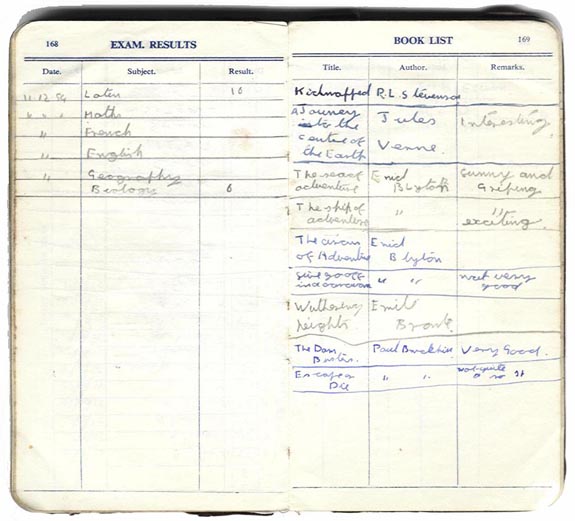 168 EXAM. RESULTS
Date. Subject. Result.
11.12.54 Laten 10
" " " Math
" French
" English
" Geography
Biology 6
BOOK LIST 169
Title. Author. Remarks.
Kidnapped R.L. Stevenson
A Journey Jules Interesting
to the
centre of Verne.
the Earth
The sea of Enid funny and
adventure Blyton Griping
The ship of " "
adventure exciting.
The circus Enid
of Adventure Blyton
Five go off " " not very
in a caravan good
Wuthering Emily
heights. Bronte
The Dam Paul Brickhill Very Good.
Busters.
Escape or " " not quite
Die so